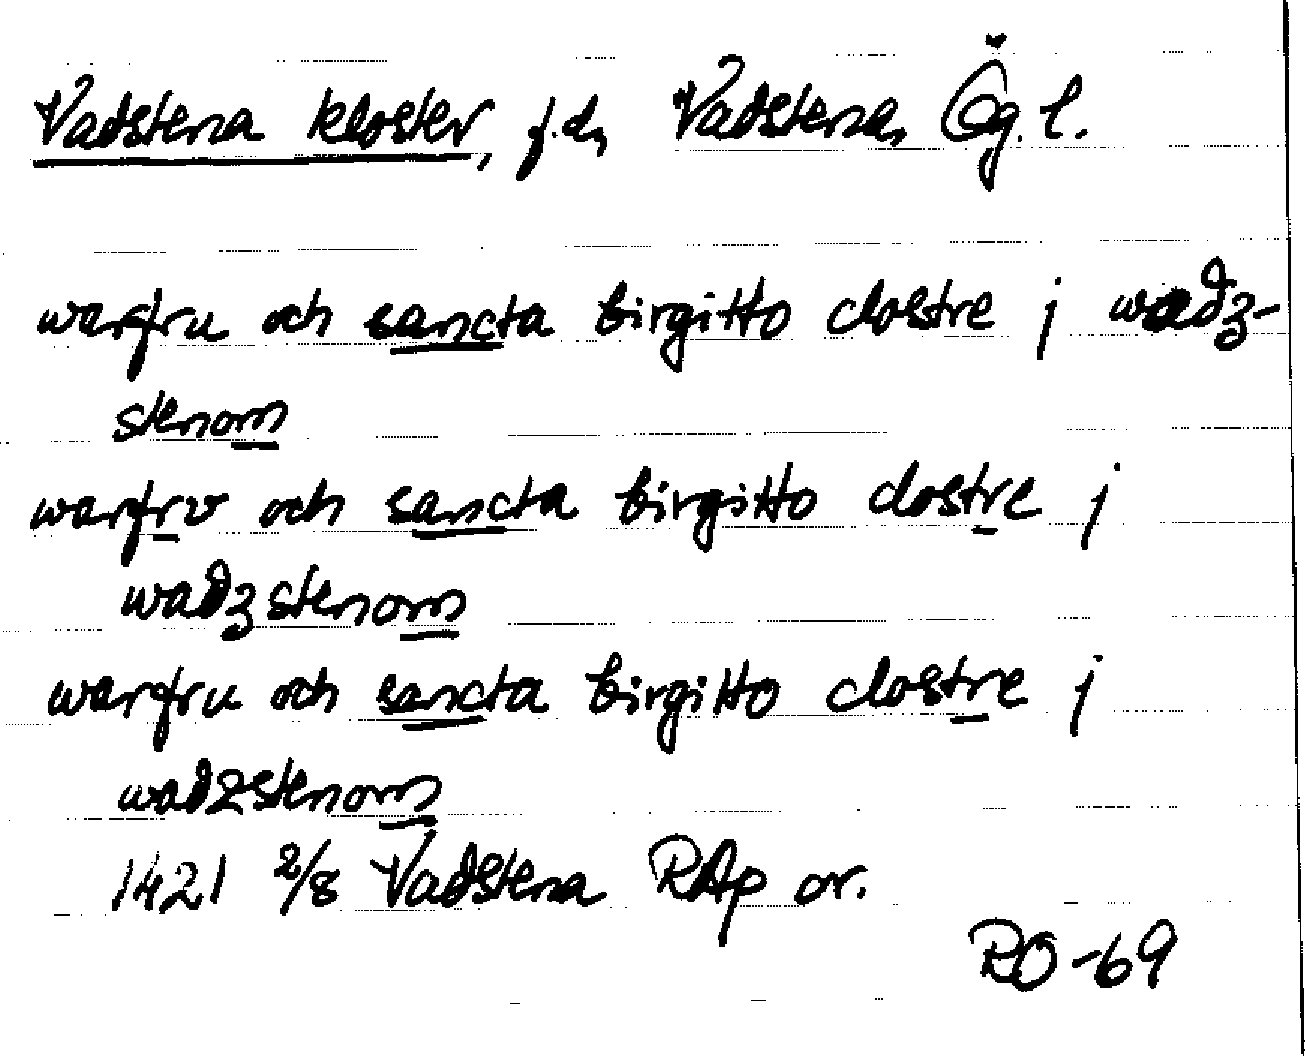 Vadstena kloster, f.d., Vadstena, Ög. l.
warfru och sancta birgitto clostre j wadz-
stenom
warfrv och sancta birgitto clostre j
wadzstenom
warfru och sancta birgitto clostre j
wadzstenom
1421 2/8 Vadstena RAp or.
RO -69